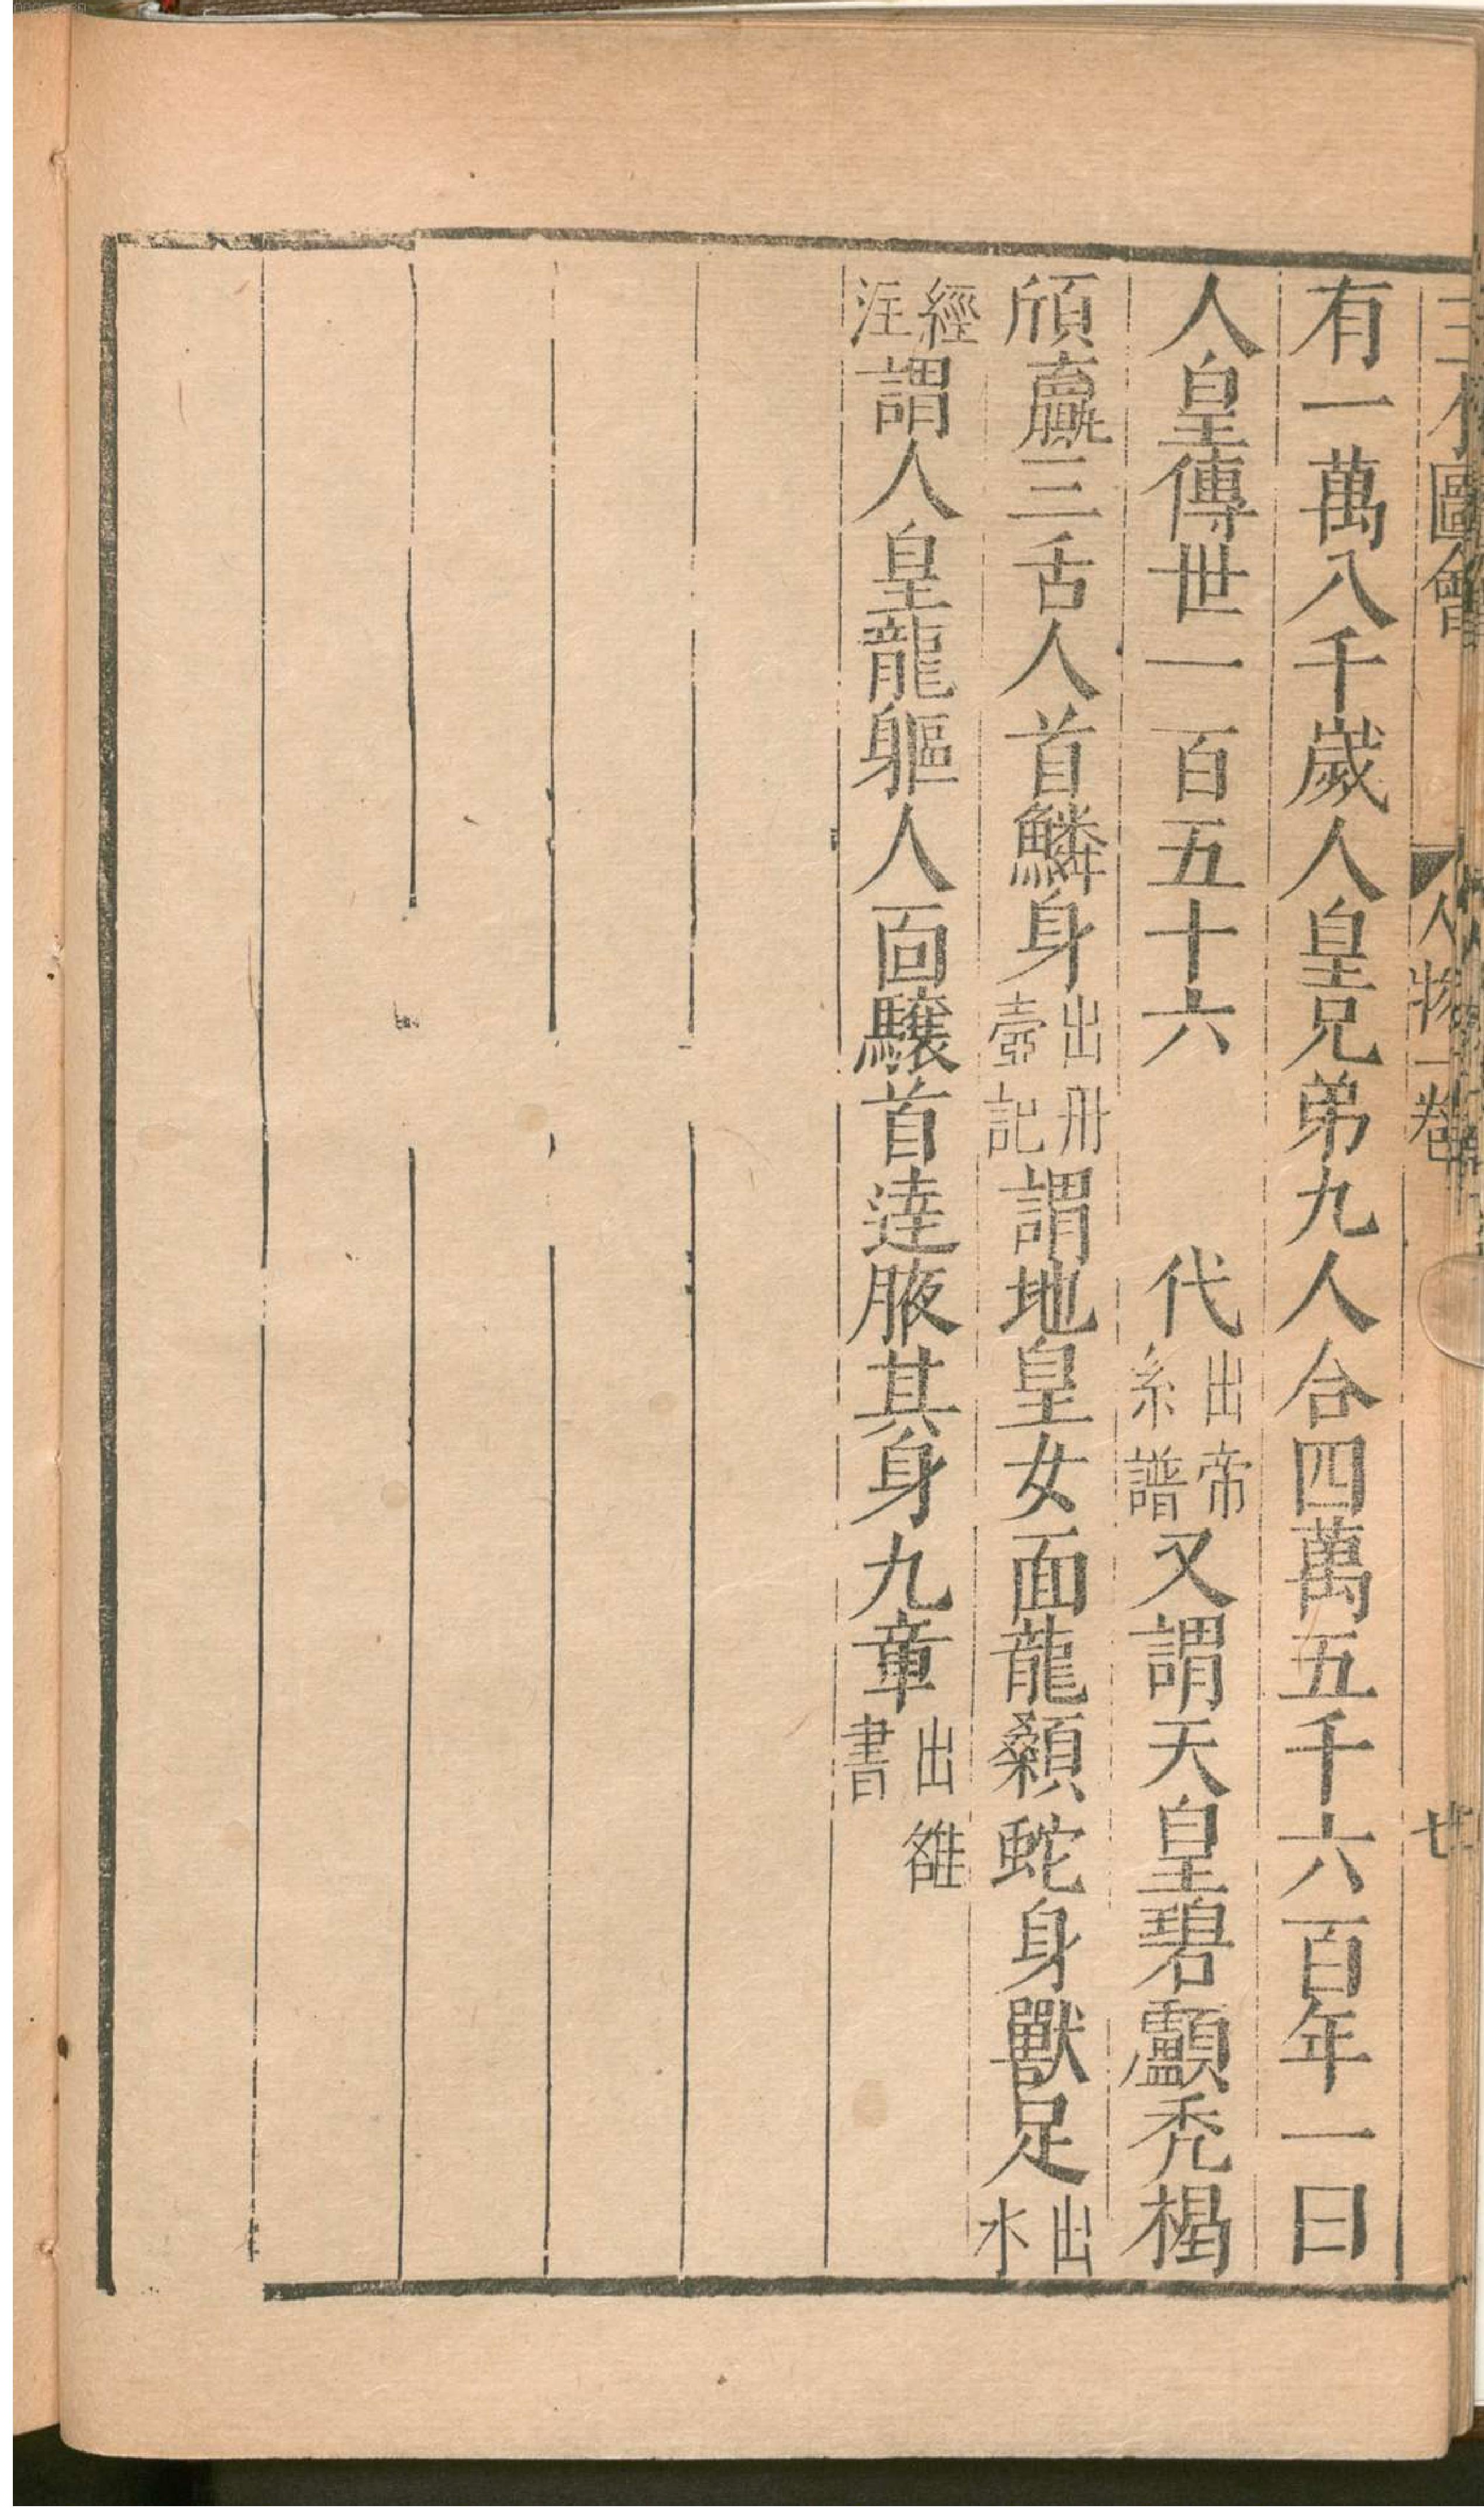 三才圖會 人物一卷 七
有一萬八千歲人皇兄弟九人合四萬五千六百年一曰
人皇傳世一百五十六 代出帝系譜又謂天皇碧顱禿楬
頎羸三舌人首鱗身出丹壺記謂地皇女面龍顙蛇身獸足出水
經注謂人皇龍軀人面驤首達腋其身九章出雒書